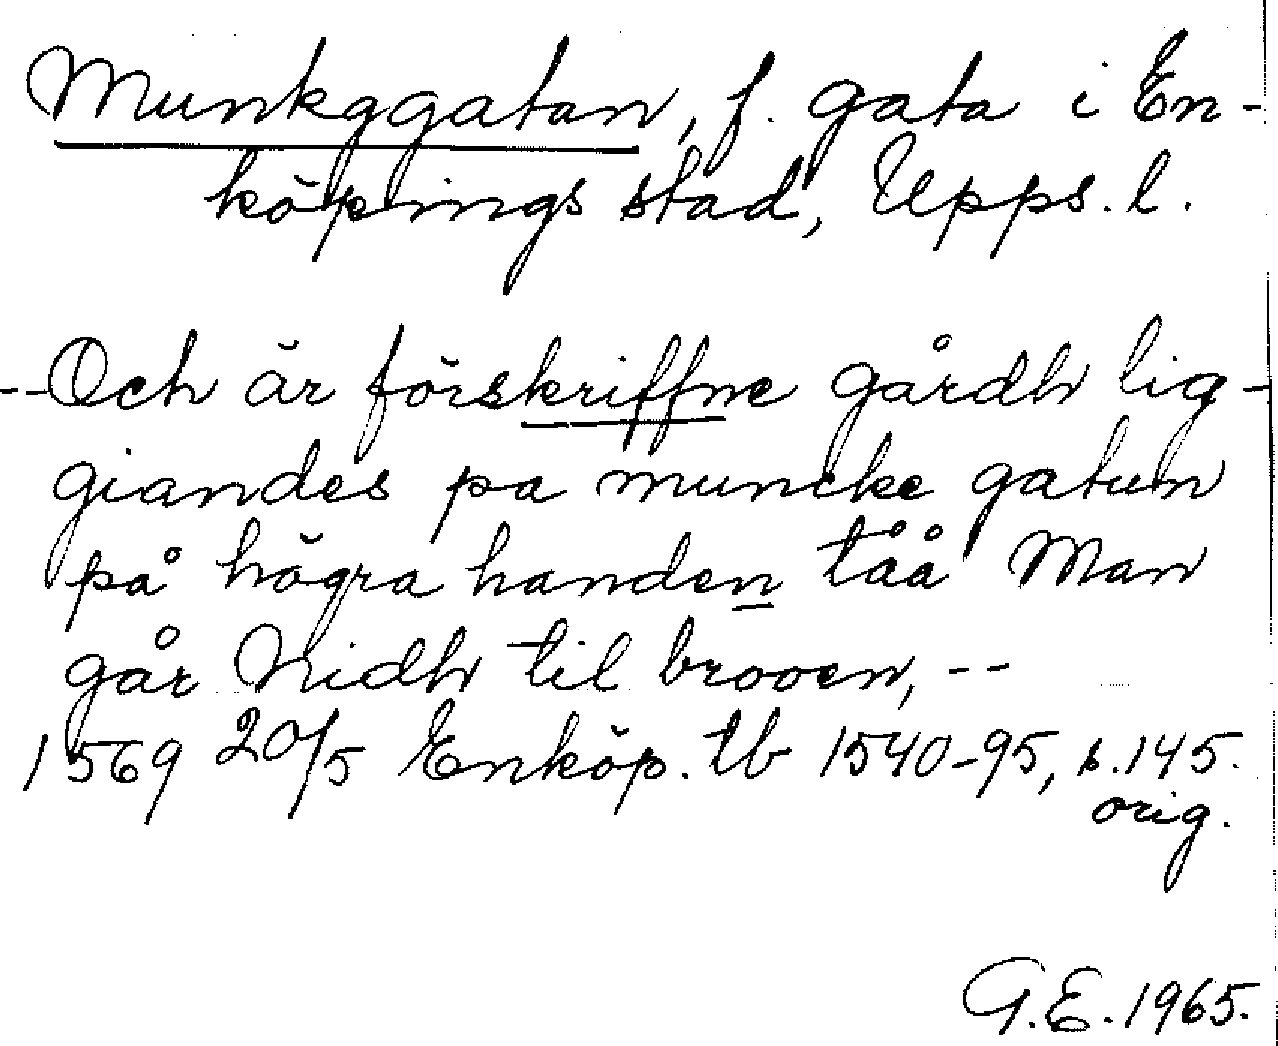 Munkggatan, f. gata i En-
köpings stad, Upps. l.
--Och är förskriffne gårdh lig-
giandes pa muncke gatun
på högra handen tåå Man
går Nidh til brooen, --
1569 20/5 Enköp. tb 1540-95, s. 145.
orig.
G.E. 1965.